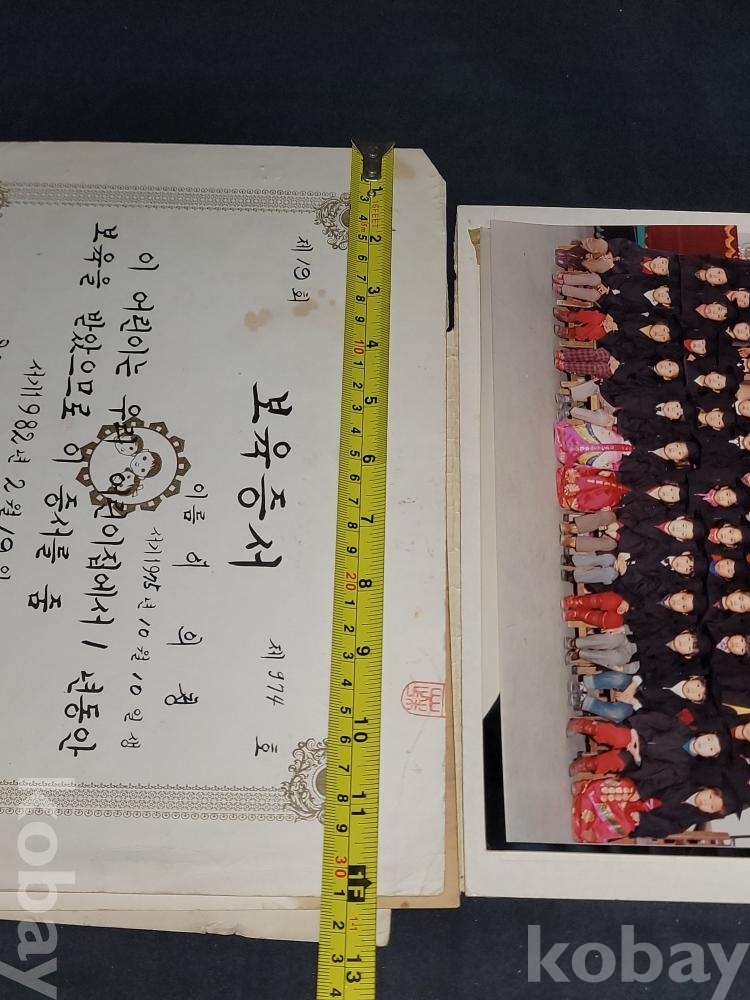 제19회
제974호
보육증서
이름 허 희 정
서기1975년10월10일생
이 어린이는 우리 어린이집에서 1년동안
보육을 받았으므로 이 증서를 줌
서기1982년 2월19일
kobay
kobay